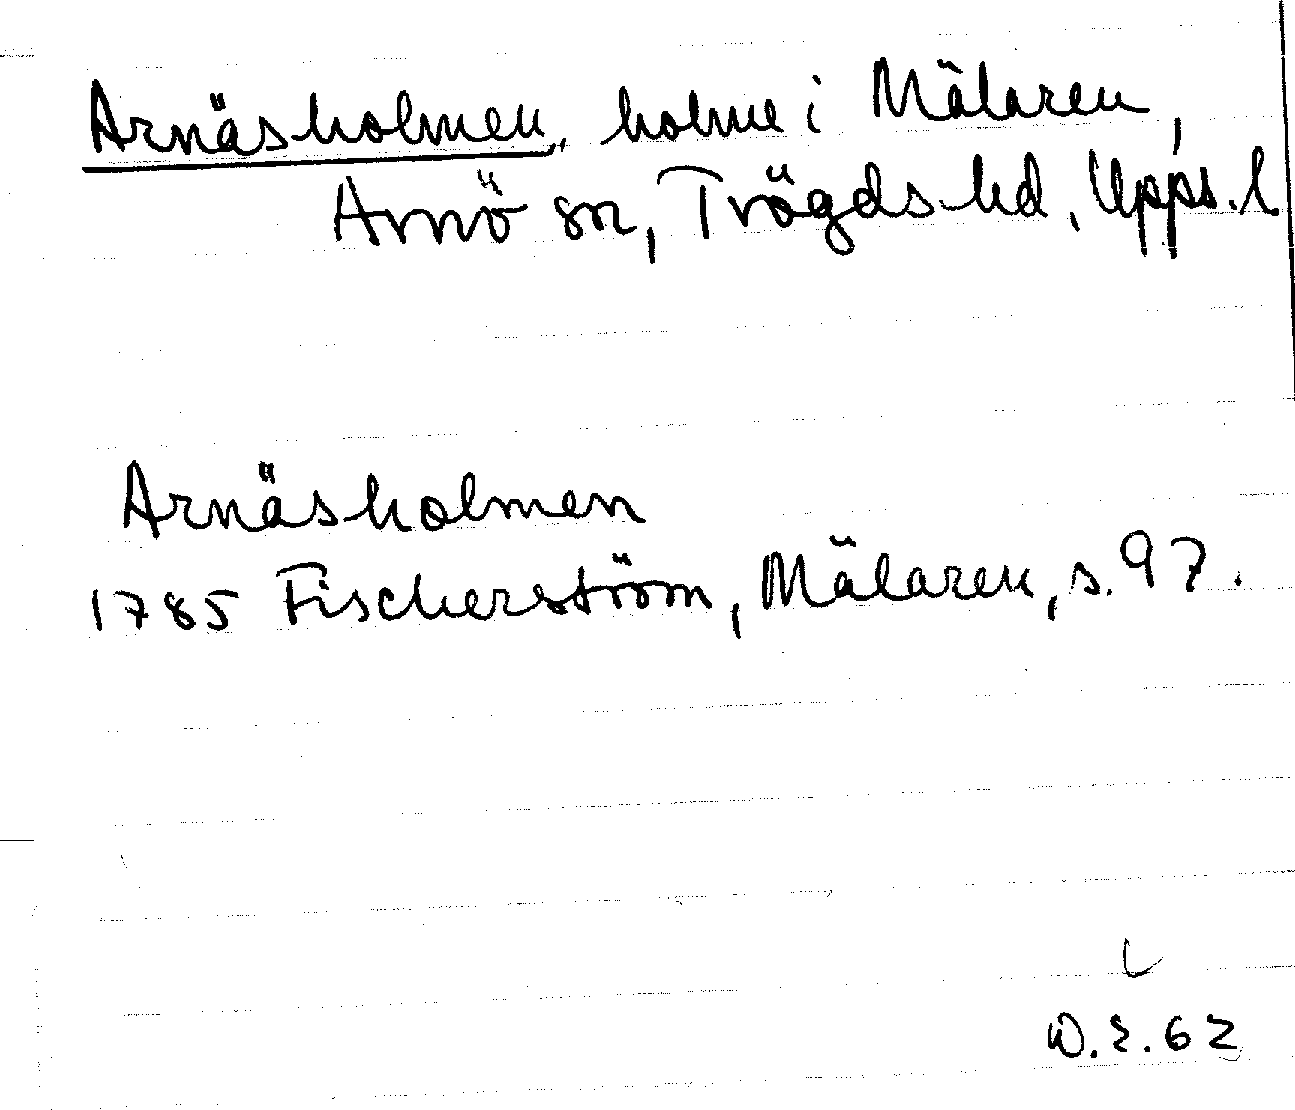 Arnäsholmen, holme i Mälaren,
Arnö sn, Trögds hd, Upps. l
Arnäsholmen
1785 Fischerström, Mälaren, s. 97.